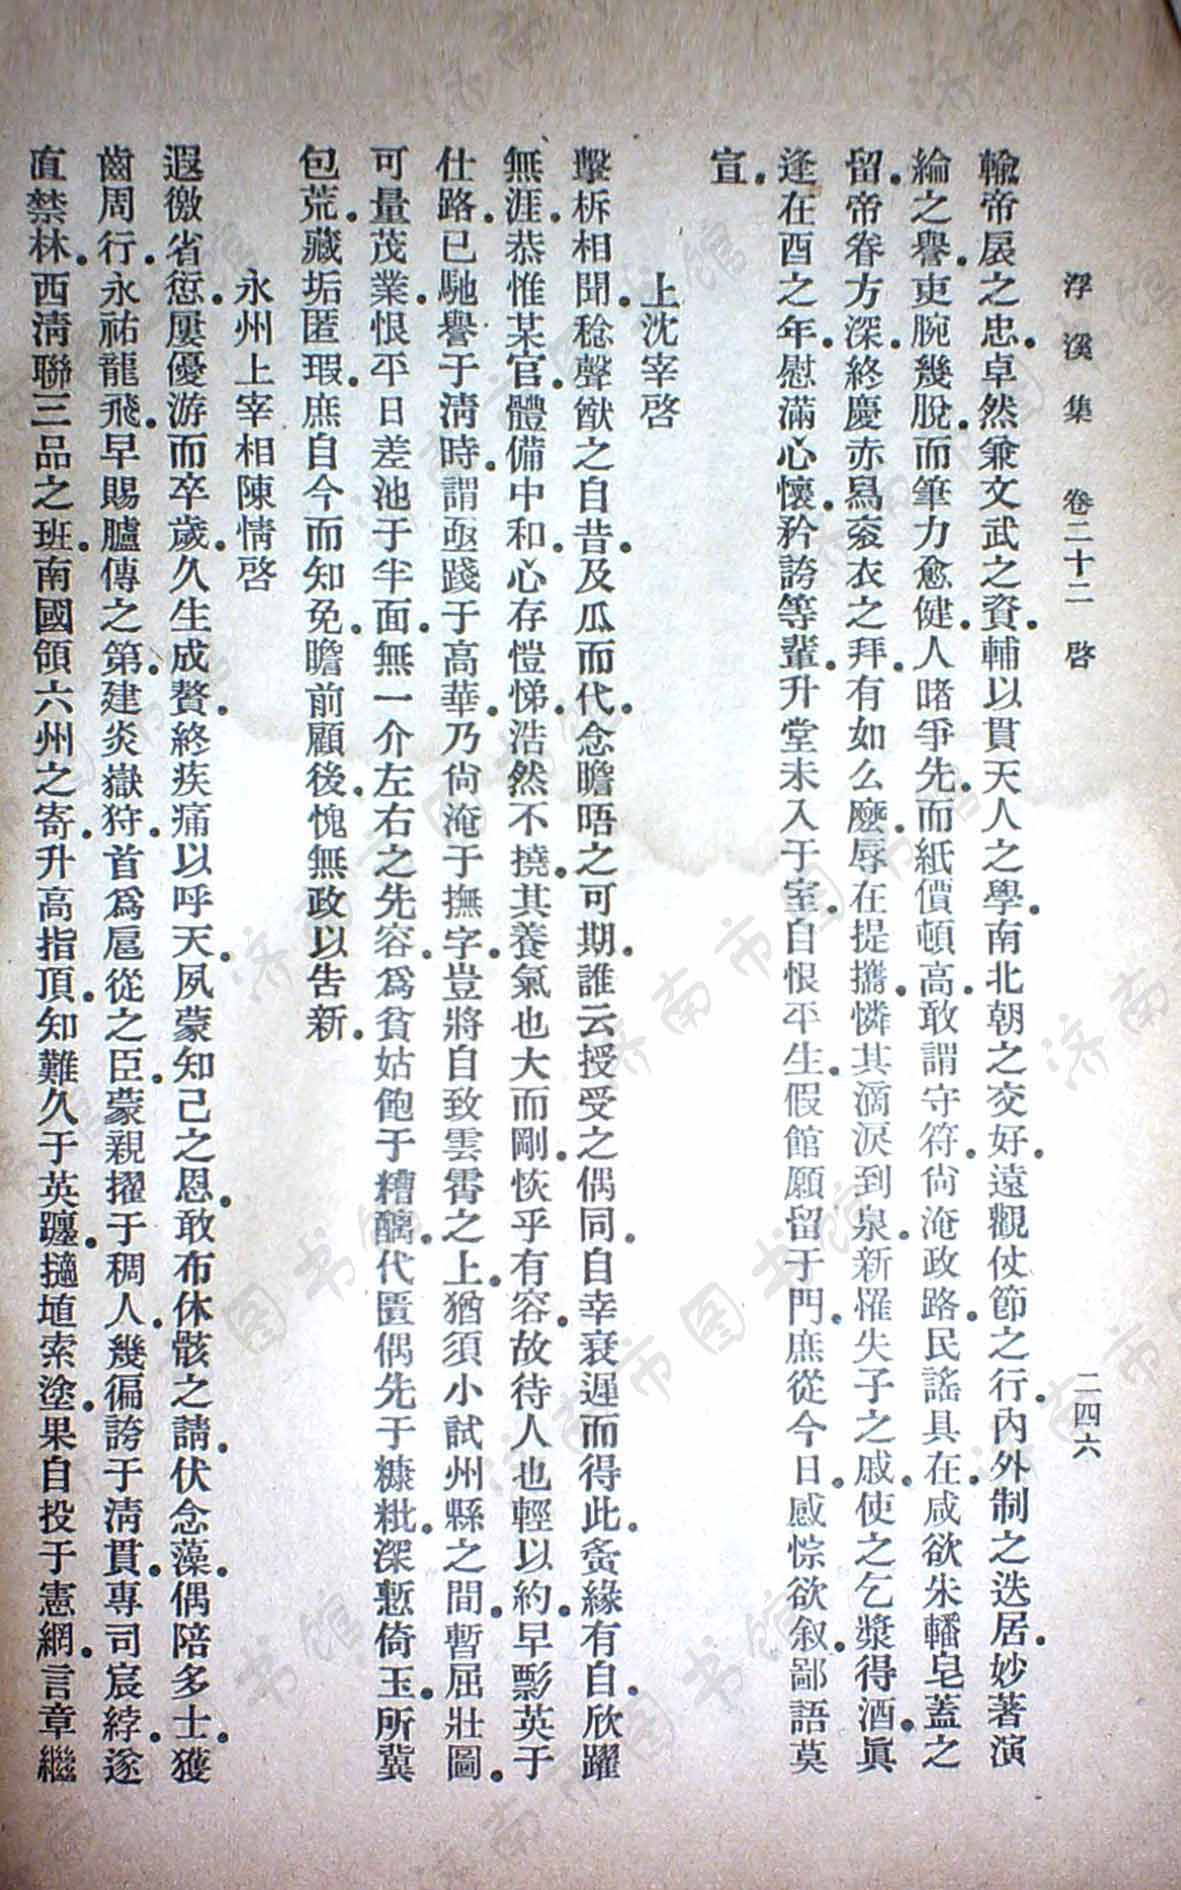 浮溪集 卷二十二 啓 二四六
輸帝扆之忠。卓然兼文武之資。輔以貫天人之學。南北朝之交好。遠觀仗節之行。內外制之迭居。妙著演
綸之譽。吏腕幾脫。而筆力愈健。人睹爭先。而紙價頓高。敢謂守符。尙淹政路。民謠具在。咸欲朱轓皂蓋之
留。帝眷方深。終慶赤舄袞衣之拜。有如么麼。辱在提攜。憐其滴淚到泉。新罹失子之戚。使之乞漿得酒。眞
逢在酉之年。慰滿心懷。矜誇等輩。升堂未入于室。自恨平生。假館願留于門。庶從今日。感悰欲叙。鄙語莫
宣。
上沈宰啓
擊柝相聞。稔聲猷之自昔。及瓜而代。念瞻晤之可期。誰云授受之偶同。自幸衰遲而得此。夤緣有自。欣躍
無涯。恭惟某官。體備中和。心存愷悌。浩然不撓。其養氣也大而剛。恢乎有容。故待人也輕以約。早髟英于
仕路。已馳譽于淸時。謂亟踐于高華。乃尙淹于撫字。豈將自致雲霄之上。猶須小試州縣之間。暫屈壯圖。
可量茂業。恨平日差池于半面。無一介左右之先容。爲貧姑飽于糟醨。代匱偶先于糠粃。深慙倚玉。所冀
包荒。藏垢匿瑕。庶自今而知免。瞻前顧後。愧無政以告新。
永州上宰相陳情啓
遐徼省愆。屢優游而卒歲。久生成贅。終疾痛以呼天。夙蒙知己之恩。敢布休骸之請。伏念藻。偶陪多士。獲
齒周行。永祐龍飛。早賜臚傳之第。建炎嶽狩。首爲扈從之臣。蒙親擢于稠人。幾徧誇于淸貫。專司宸綍。遂
直禁林。西淸聯三品之班。南國領六州之寄。升高指頂。知難久于英躔。擿埴索塗。果自投于憲網。言章繼